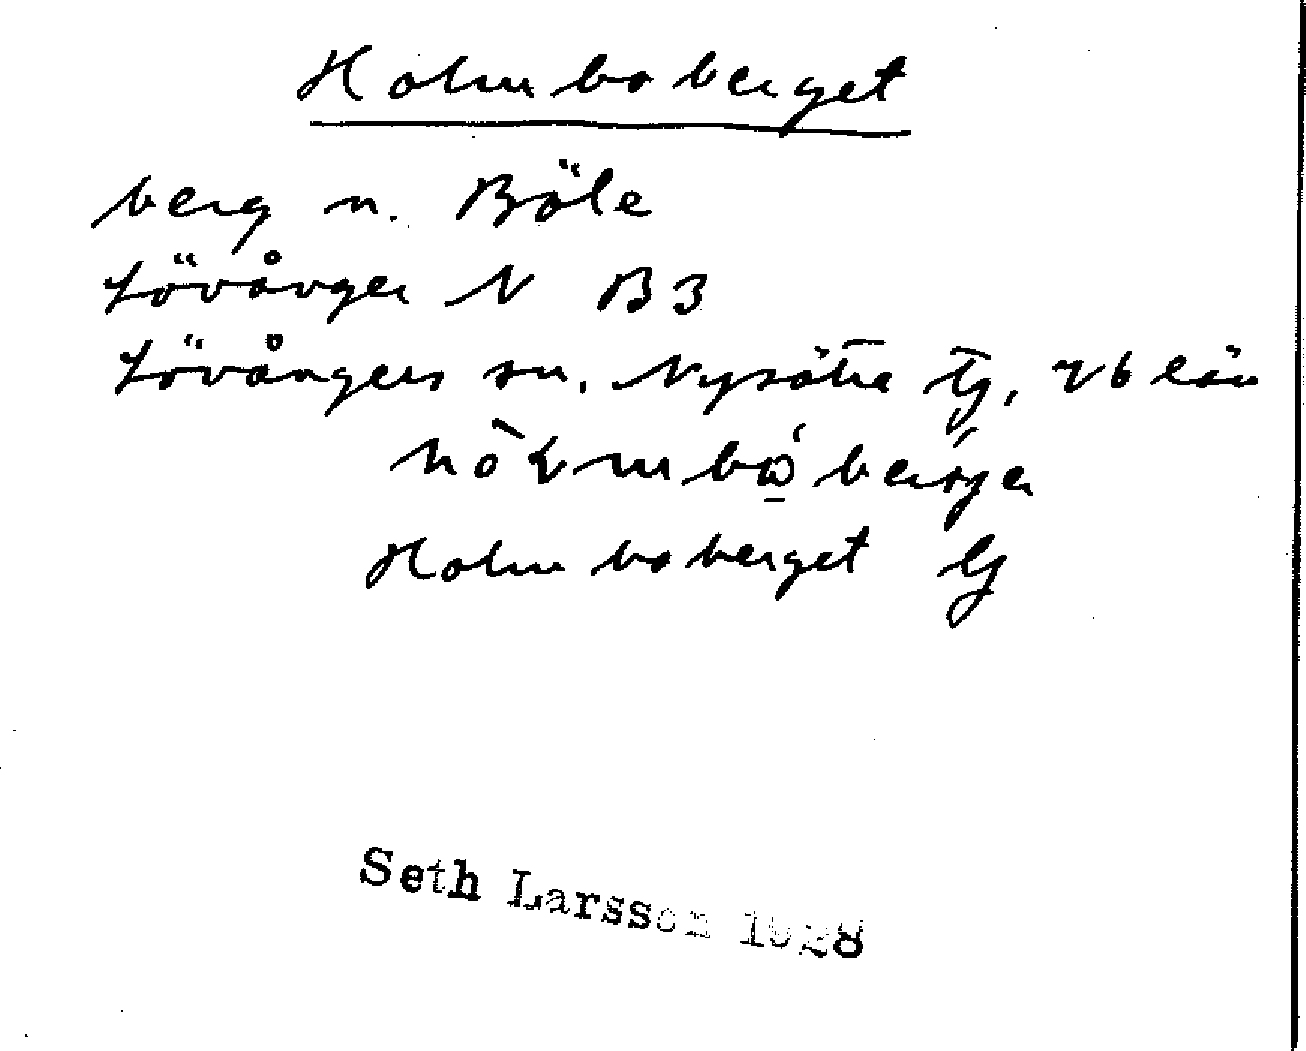 Holmboberget
berg n. Böle
Lövånger N B3
Lövångers sn. Nysätra tg, Vb län
Holmboberget Lj
Seth Larsson 1928